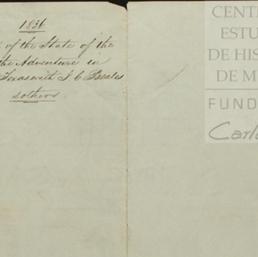 1836
of the State of the
the Adventure in
Texas with J. C. Beales
& others
CENT
ESTU
DE HIS
DE M
FUND
Carl